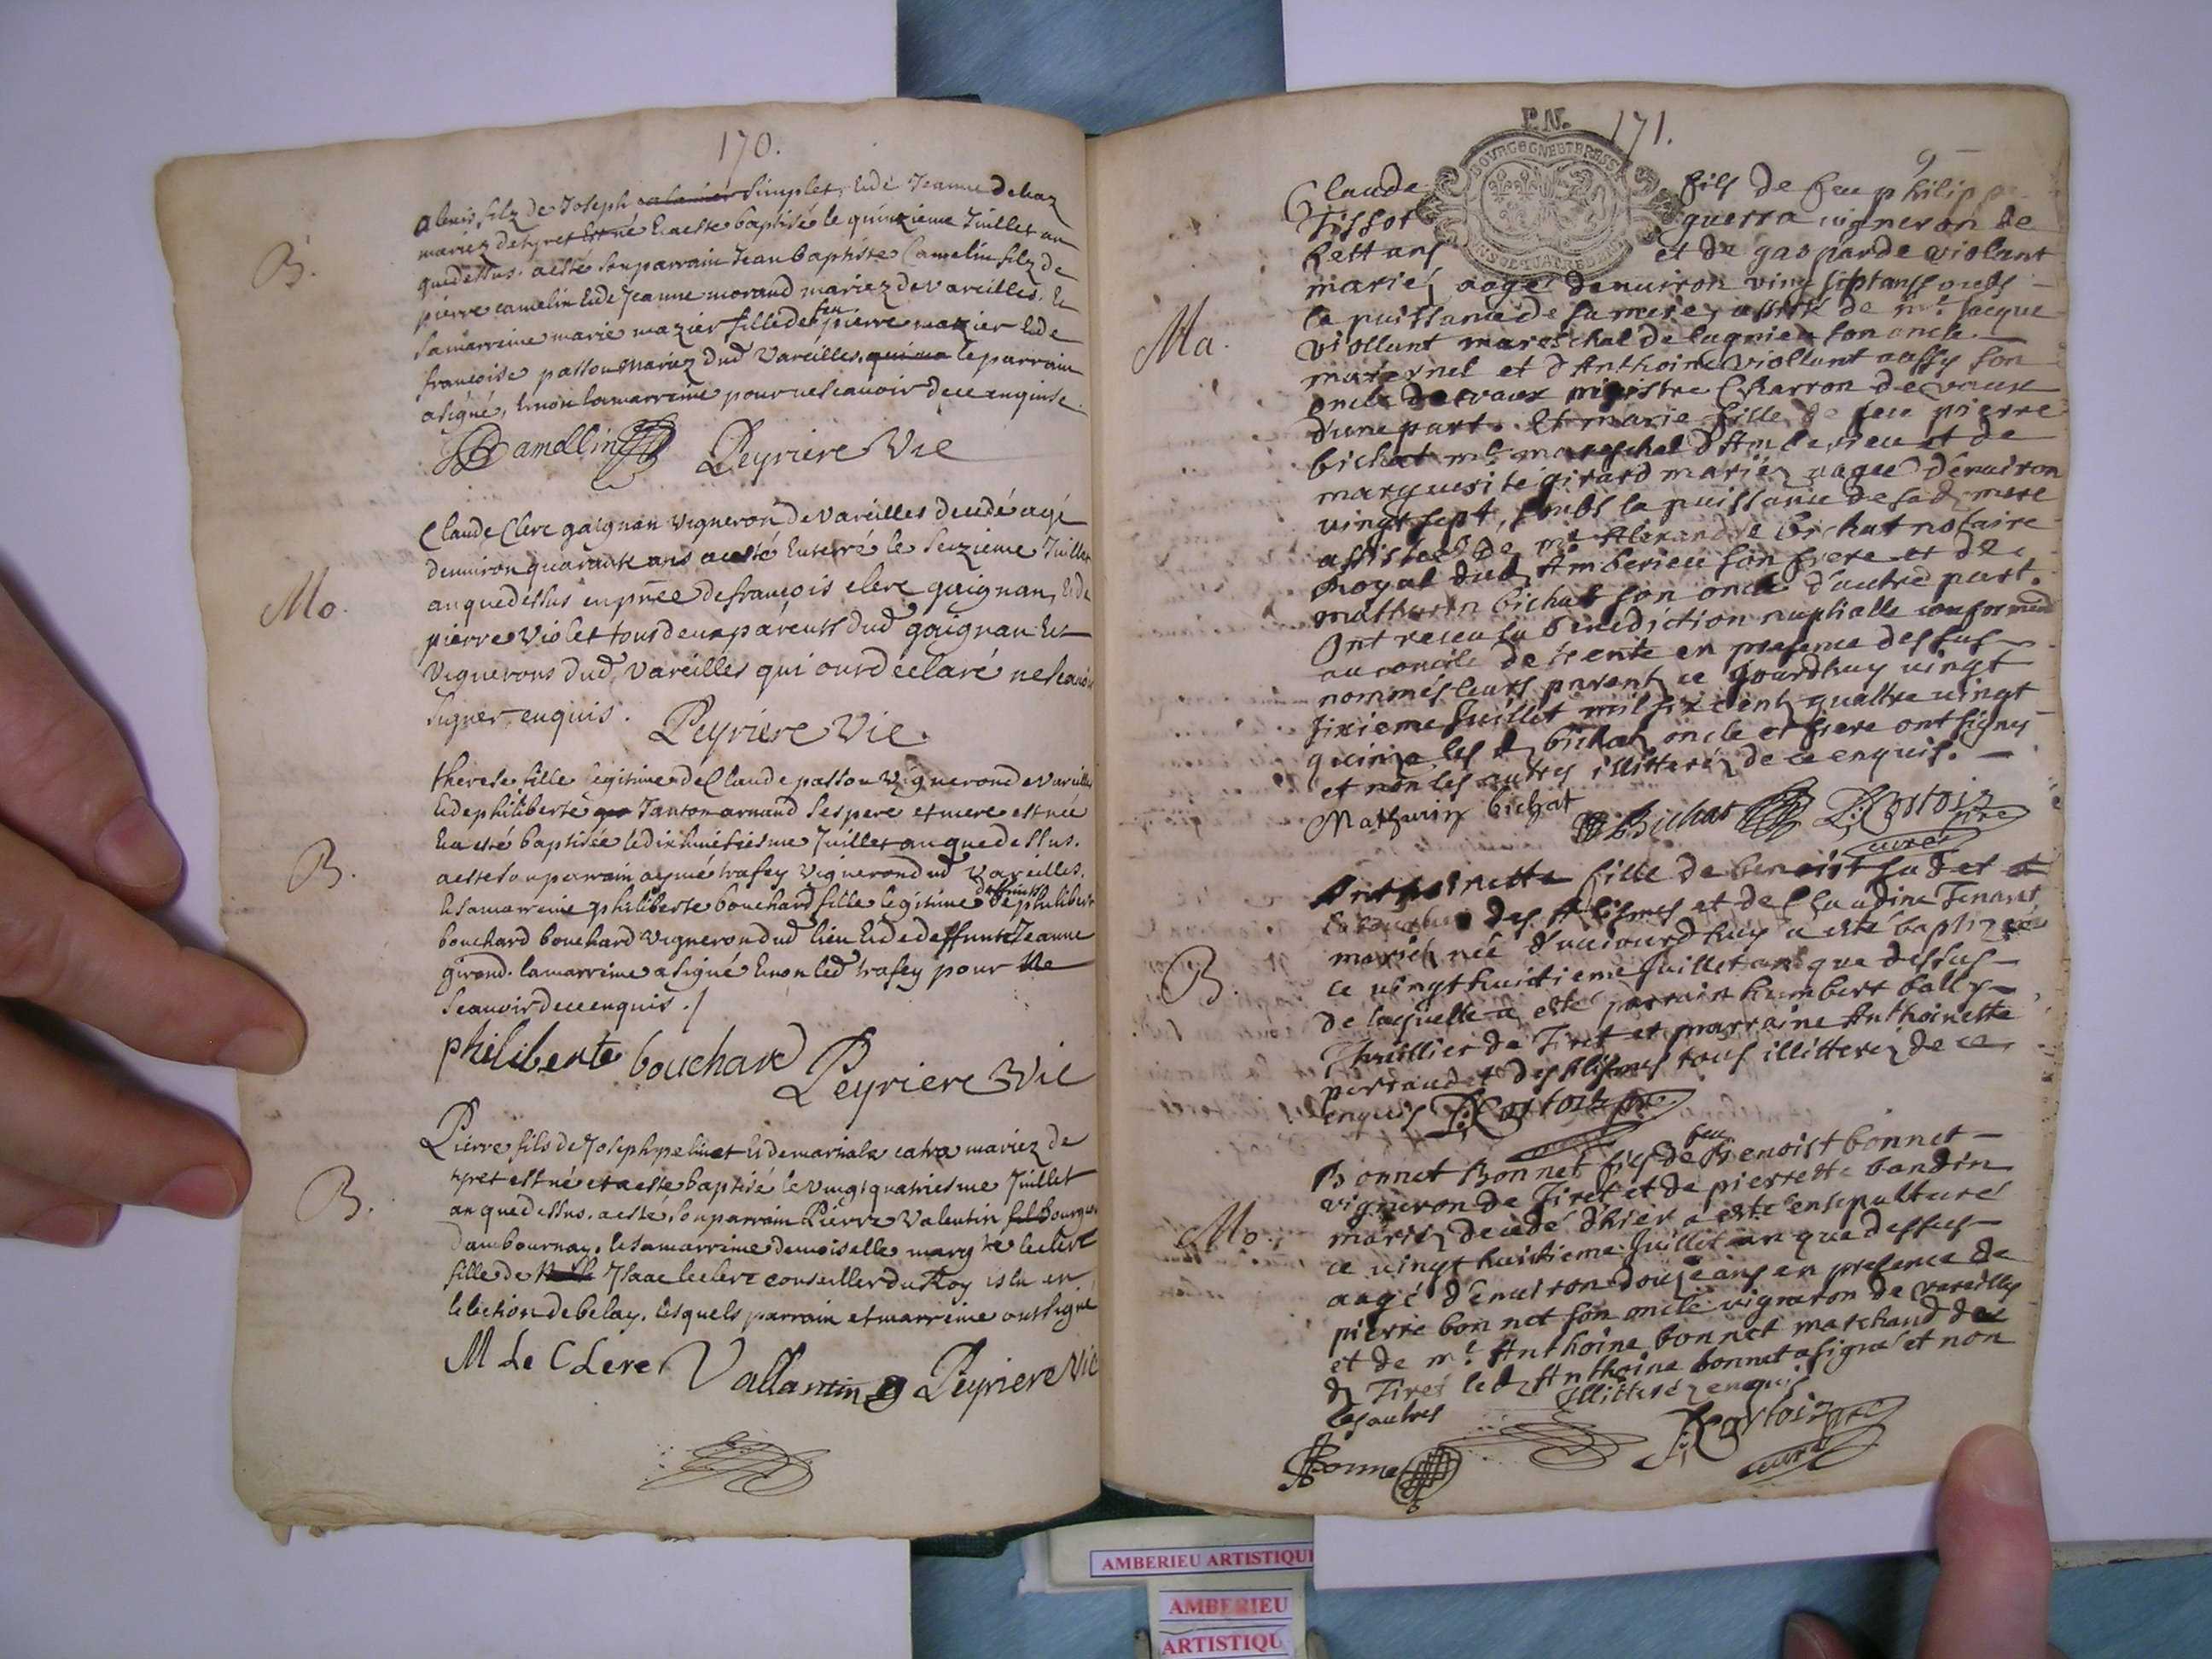 170.
B.
alexis filz de Joseph Simplet, et de Jeanne debaz
mariez detyret est né et a esté baptisé le quinzieme Juillet an
que dessus. a esté son parrain Jean baptiste Camelin filz de
pierre camelin et de Jeanne morand mariez de vareilles. Et
sa marreine marie mazier fille de feu pierre mazier et de
françoise passou mariez dud vareilles, le parrain
a signé, et non la marreine pour ne scavoir de ce enquise.
Camellin Peyriere Vic
Mo.
Claude Clerc gaignan vigneron de Vareilles decedé agé
denuiron quarante ans a esté enterré le seizieme Juillet
an que dessus en pñce de françois clerc gaignan, et de
pierre Violet tous deux parents dud gaignan et
Vignerons dud Vareilles qui ont declaré ne scavoir
signer enquis. Peyriere Vic.
B.
therese fille legitime de Claude passou Vigneron de vareilles
et de philiberte Janton arnaud ses pere et mere est née
et a esté baptisée le dixhuictiesme Juillet an que dessus.
a esté son parrain aymé trafey Vigneron dud Vareilles.
et sa marreine philiberte bouchard fille legitime de deffunt philibert
bouchard bouchard Vigneron dud lieu et de deffunte Jeanne
girond. la marreine a signé et non led trafey pour Ne
scavoir de ce enquis ./
philiberte bouchard Peyriere Vic
B.
Pierre fils de Joseph pelinet et de mariale catra mariez de
tyret est né et a esté baptisé le Vingt quatriesme Juillet
an que dessus. a esté son parrain Pierre Valentin bourgeois
Dambournay, et sa marreine demoiselle margte leclerc
fille de Isaac leclerc conseiller du Roy eslu en
lelection de belay, lesquels parrain et marreine ont signé
M Le CLerc Vallantin Peyriere Vic
P.N. 171.
BOURGOGNE ET BRESSE
9
Ma.
Claude fils de feu philippe
Tissot guerra vigneron de
Bettans et de gasparde violant
mariéz aagé denuiron vingt sept ans soubs
la puissance de sa mere, assisté de mr. Jacque
Viollant mareschal de lagnieu son oncle
maternel et d'Anthoine Viollant aussy son
oncle de vaux Charron de vaux
d'une part. Et marie fille de feu pierre
bichat me mareschal d'Amberieu et de
marguerite girard mariéz aagée d'enuiron
vingt sept, soubs la puissance de sad mere
assistée de me Alexandre bichat notaire
Royal dud Amberieu son frere et de
mathurin bichat son oncle d'autre part.
Ont receu la benediction nuptialle conformemt
au concile de trente en presence des sus
nommés leurs parents ce Jourdhuy vingt
sixieme Juillet mil six cent quattre vingt
quinze les d bichat oncle et frere ont signy
et non les autres illitteréz de ce enquis.
Mathurin bichat Bichat Costoiz pre
curé
B.
Anthoinette fille de benoist Judet et
des Alismes et de Claudine Tenant
mariéz née d'aujourdhuy a esté baptizée
ce vingt huictieme Juillet an que dessus
de laquelle a esté parrain humbert bally
Thuillier de Tiret et marraine Anthoinette
perraud des Alismes tous illitteréz de ce
enquis Costoiz pre.
curé
Mo.
Bonnet Bonnet fils de feu Benoist bonnet
vigneron de Tiret et de pierrette bandin
mariéz decedé d'hier a esté ensepulturé
ce vingt huictieme Juillet an que dessus
aagé d'enuiron douze ans en presence de
pierre bonnet son oncle vigneron de vareilles
et de mr. Anthoine bonnet marchand de
d Tiret led Anthoine bonnet a signé et non
les autres Illitteréz enquis
Bonnet Costoiz pre
curé
AMBERIEU ARTISTIQU
AMBERIEU
ARTISTIQU